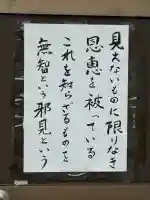 見えないものに限りなき
恩恵を被っている
これを知らざるものを
無智という邪見という